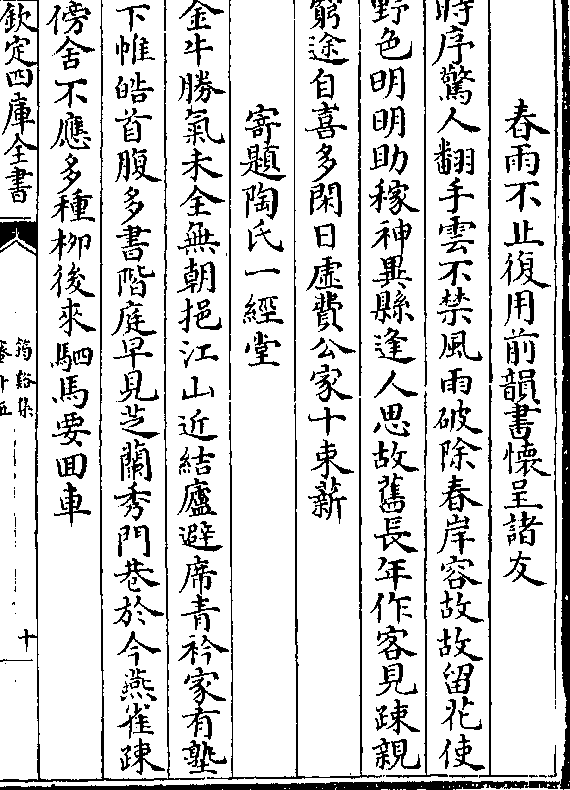 春雨不止復用前韻書懷呈諸友
時序驚人翻手雲不禁風雨破除春岸容故故留花使
野色明明助稼神異縣逢人思故舊長年作客見踈親
窮途自喜多閑日虛費公家十束薪
寄題陶氏一經堂
金牛勝氣未全無朝挹江山近結廬避席青衿家有塾
下帷皓首腹多書階庭早見芝蘭秀門巷於今燕雀踈
傍舍不應多種栁後來駟馬要回車
欽定四庫全書
筠谿集
卷十五
十